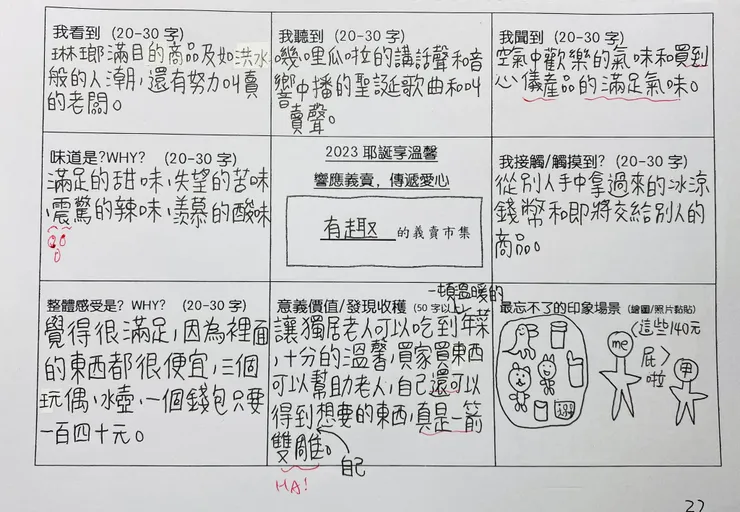 我看到 (20-30 字)
琳瑯滿目的商品及如洪水
般的人潮,還有努力叫賣
的老闆。
我聽到 (20-30 字)
嘰哩瓜啦的講話聲和音
響中播的聖誕歌曲和叫
賣聲。
我聞到 (20-30 字)
空氣中歡樂的氣味和買到
心儀產品的滿足氣味。
味道是?WHY? (20-30 字)
滿足的甜味、失望的苦味
、震驚的辣味、羨慕的酸味
2023 耶誕享溫馨
響應義賣,傳遞愛心
有趣 的義賣市集
我接觸/觸摸到? (20-30 字)
從別人手中拿過來的冰涼
錢幣和即將交給別人的
商品。
整體感受是? WHY? (20-30 字)
覺得很滿足,因為裡面
的東西都很便宜,三個
玩偶、水壺、一個錢包只要
一百四十元。
意義價值/發現收穫 (50 字以上)
一頓溫暖的
讓獨居老人可以吃到年菜
,十分的溫馨,買家買東西
可以幫助老人,自己還可以
得到想要的東西,真是一箭
雙雕。
自己
HA!
最忘不了的印象場景 (繪圖/照片黏貼)
這些140元
me
屁
啦
甲
27